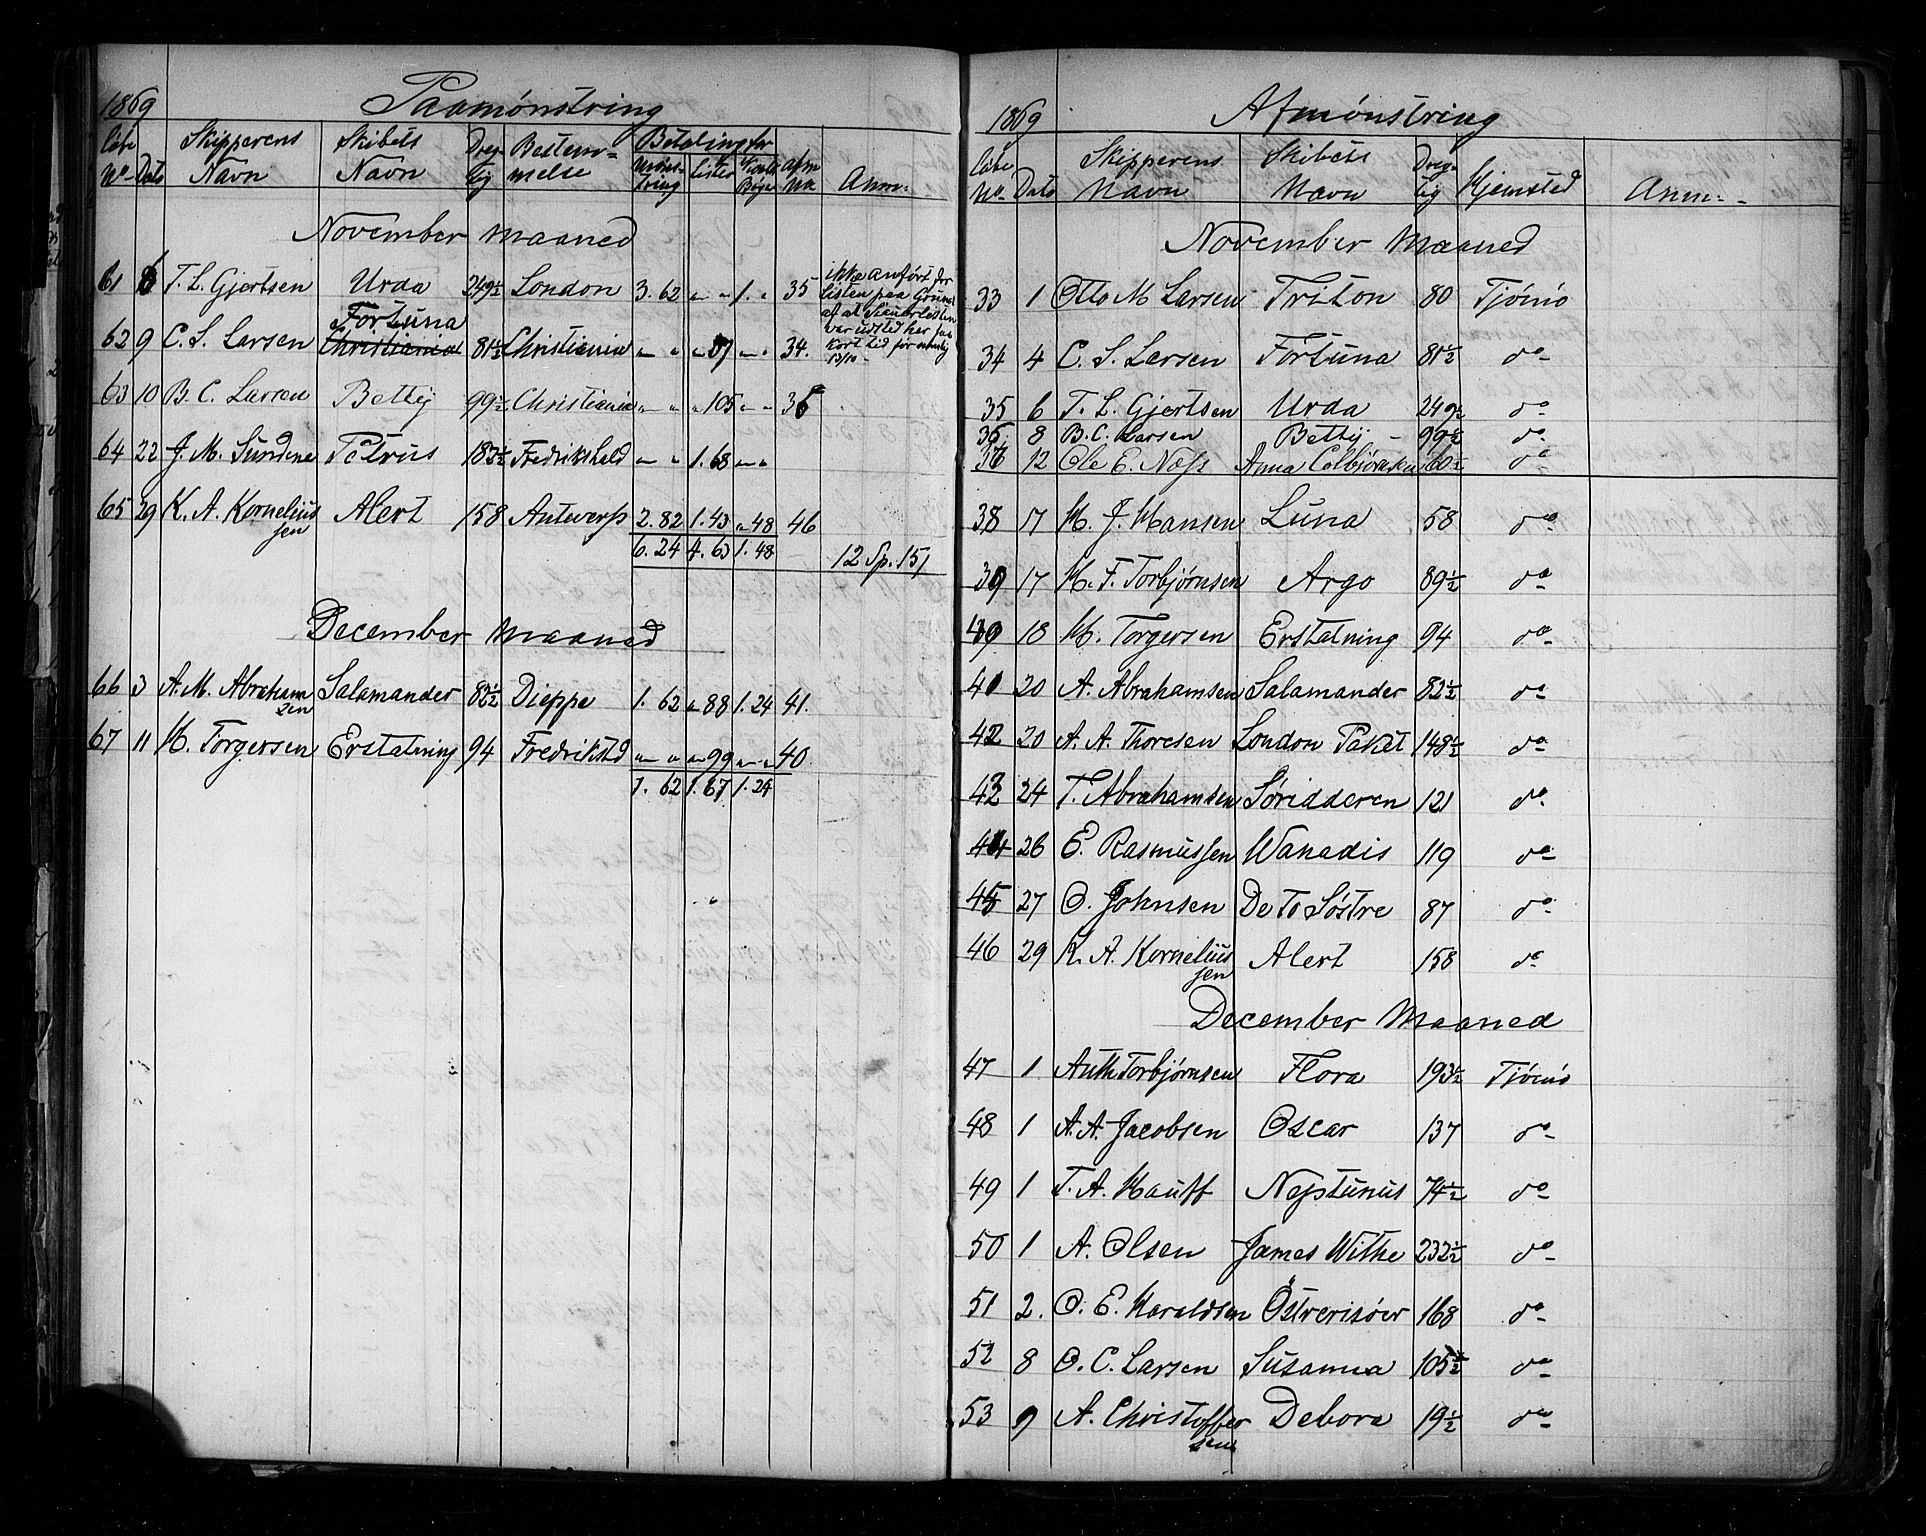 1869 Paamønstring
Löbe No Dato Skipperens Navn Skibets Navn Dreg-tig Bestem-melse Betaling for Mønst-tring Lister Kontr. Bøger Afm No Anm:
November Maaned
61 6 T. L. Gjertsen Urda 249½ London 3. 62 " " 1. " 35 ikke anført for
listen paa Grund
af at
var udsted her
kort tid før
13/10
62 9 C. S. Larsen Fortuna Christiania 81½ Christiania " " " 87 " " 34.
63 10 B. C. Larsen Betty 99½ Christiania " " " 105 " " 36
64 22 J. M. Sundene Petrus 183½ Fredrikshald " " 1. 68 " "
65 29 K. A. Kornelius sen Alert 158 Antwerp 2. 82 1. 43 " 48 46
6. 24 4. 63 1. 48
12 Sp. 15/
December Maaned
66 3 A. M. Abraham sen Salamander 82½ Dieppe 1. 62 " 88 1. 24 41.
67 11 H. Torgersen Erstatning 94 Fredrikstd " " " 99 " " 40
1. 62 1. 67 1. 24
1869 Afmønstring
Löbe No Dato Skipperens Navn Skibets Navn Dreg-tig Hjemsted Anm:
November Maaned
33 1 Otto M Larsen Triton 80 Tjömö
34 4 C. S. Larsen Fortuna 81½ do
35 6 T. L. Gjertsen Urda 249½ do
36 8 B. C. Larsen Betty 99½ do
37 12 Ole E. Næss Anna Colbjørnsen 60½ do
38 17 H. J. Hansen Luna 58 do
39 17 H. F. Torbjørnsen Argo 89½ do
40 18 H. Torgersen Erstatning 94 do
41 20 A. Abrahamsen Salamander 82½ do
42 20 A. A. Thoresen London Paket 148½ do
43 24 T. Abrahamsen Søridderen 121 do
44 26 E. Rasmussen Wanadis 119 do
45 27 O. Johnsen De To Søstre 87 do
46 29 K. A. Kornelius sen Alert 158 do
December Maaned
47 1 Anth Torbjørnsen Flora 193½ Tjömö
48 1 A. A. Jacobsen Oscar 137 do
49 1 T. A. Hauff Neptunus 74½ do
50 1 A. Olsen James Withe 232½ do
51 2. O. E. Haraldsen Östrerisöer 168 do
52 8 O. C. Larsen Susanna 105½ do
53 9 A. Christoffer sen Debora 19½ do